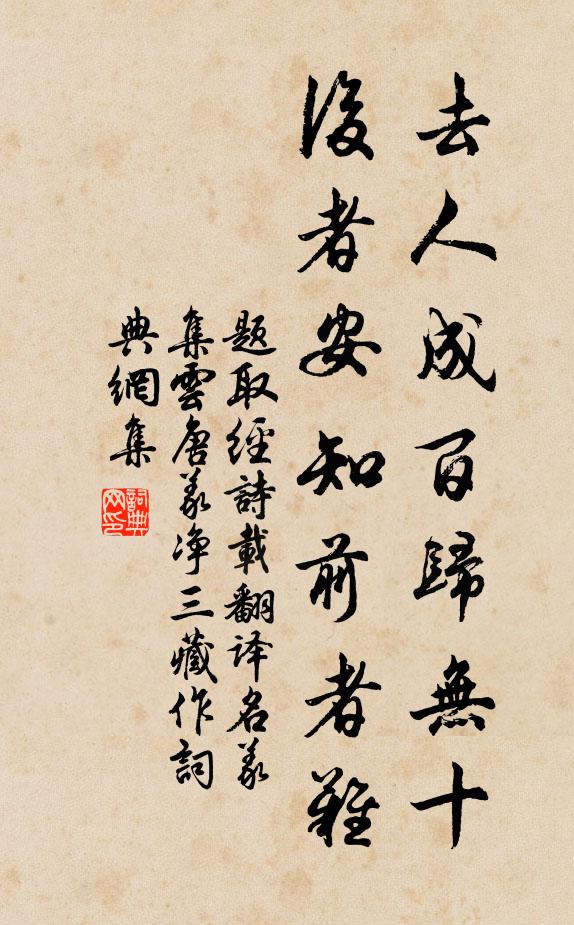 去人成百歸無十
後者安知前者難
題取經詩載翻译名義
集雲唐義净三藏作詞
典網集
詞典网印